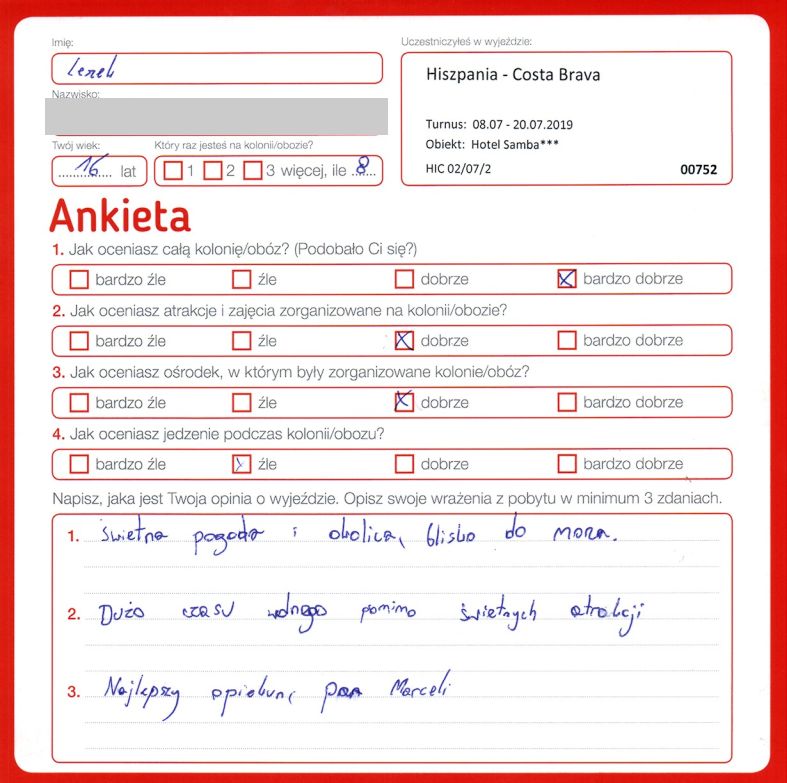 Imię:
Uczestniczyłeś w wyjeździe:
Leszek
Hiszpania - Costa Brava
Nazwisko:
Turnus: 08.07 - 20.07.2019
Obiekt: Hotel Samba***
HIC 02/07/2
00752
Twój wiek:
Który raz jesteś na kolonii/obozie?
16 lat
1 2 3 więcej, ile 8
Ankieta
1. Jak oceniasz całą kolonię/obóz? (Podobało Ci się?)
bardzo źle źle dobrze bardzo dobrze
2. Jak oceniasz atrakcje i zajęcia zorganizowane na kolonii/obozie?
bardzo źle źle dobrze bardzo dobrze
3. Jak oceniasz ośrodek, w którym były zorganizowane kolonie/obóz?
bardzo źle źle dobrze bardzo dobrze
4. Jak oceniasz jedzenie podczas kolonii/obozu?
bardzo źle źle dobrze bardzo dobrze
Napisz, jaka jest Twoja opinia o wyjeździe. Opisz swoje wrażenia z pobytu w minimum 3 zdaniach.
1. świetna pogoda i okolica, blisko do morza.
2. Dużo czasu wolnego pomimo świetnych atrakcji
3. Najlepszy opiekun, pan Marceli